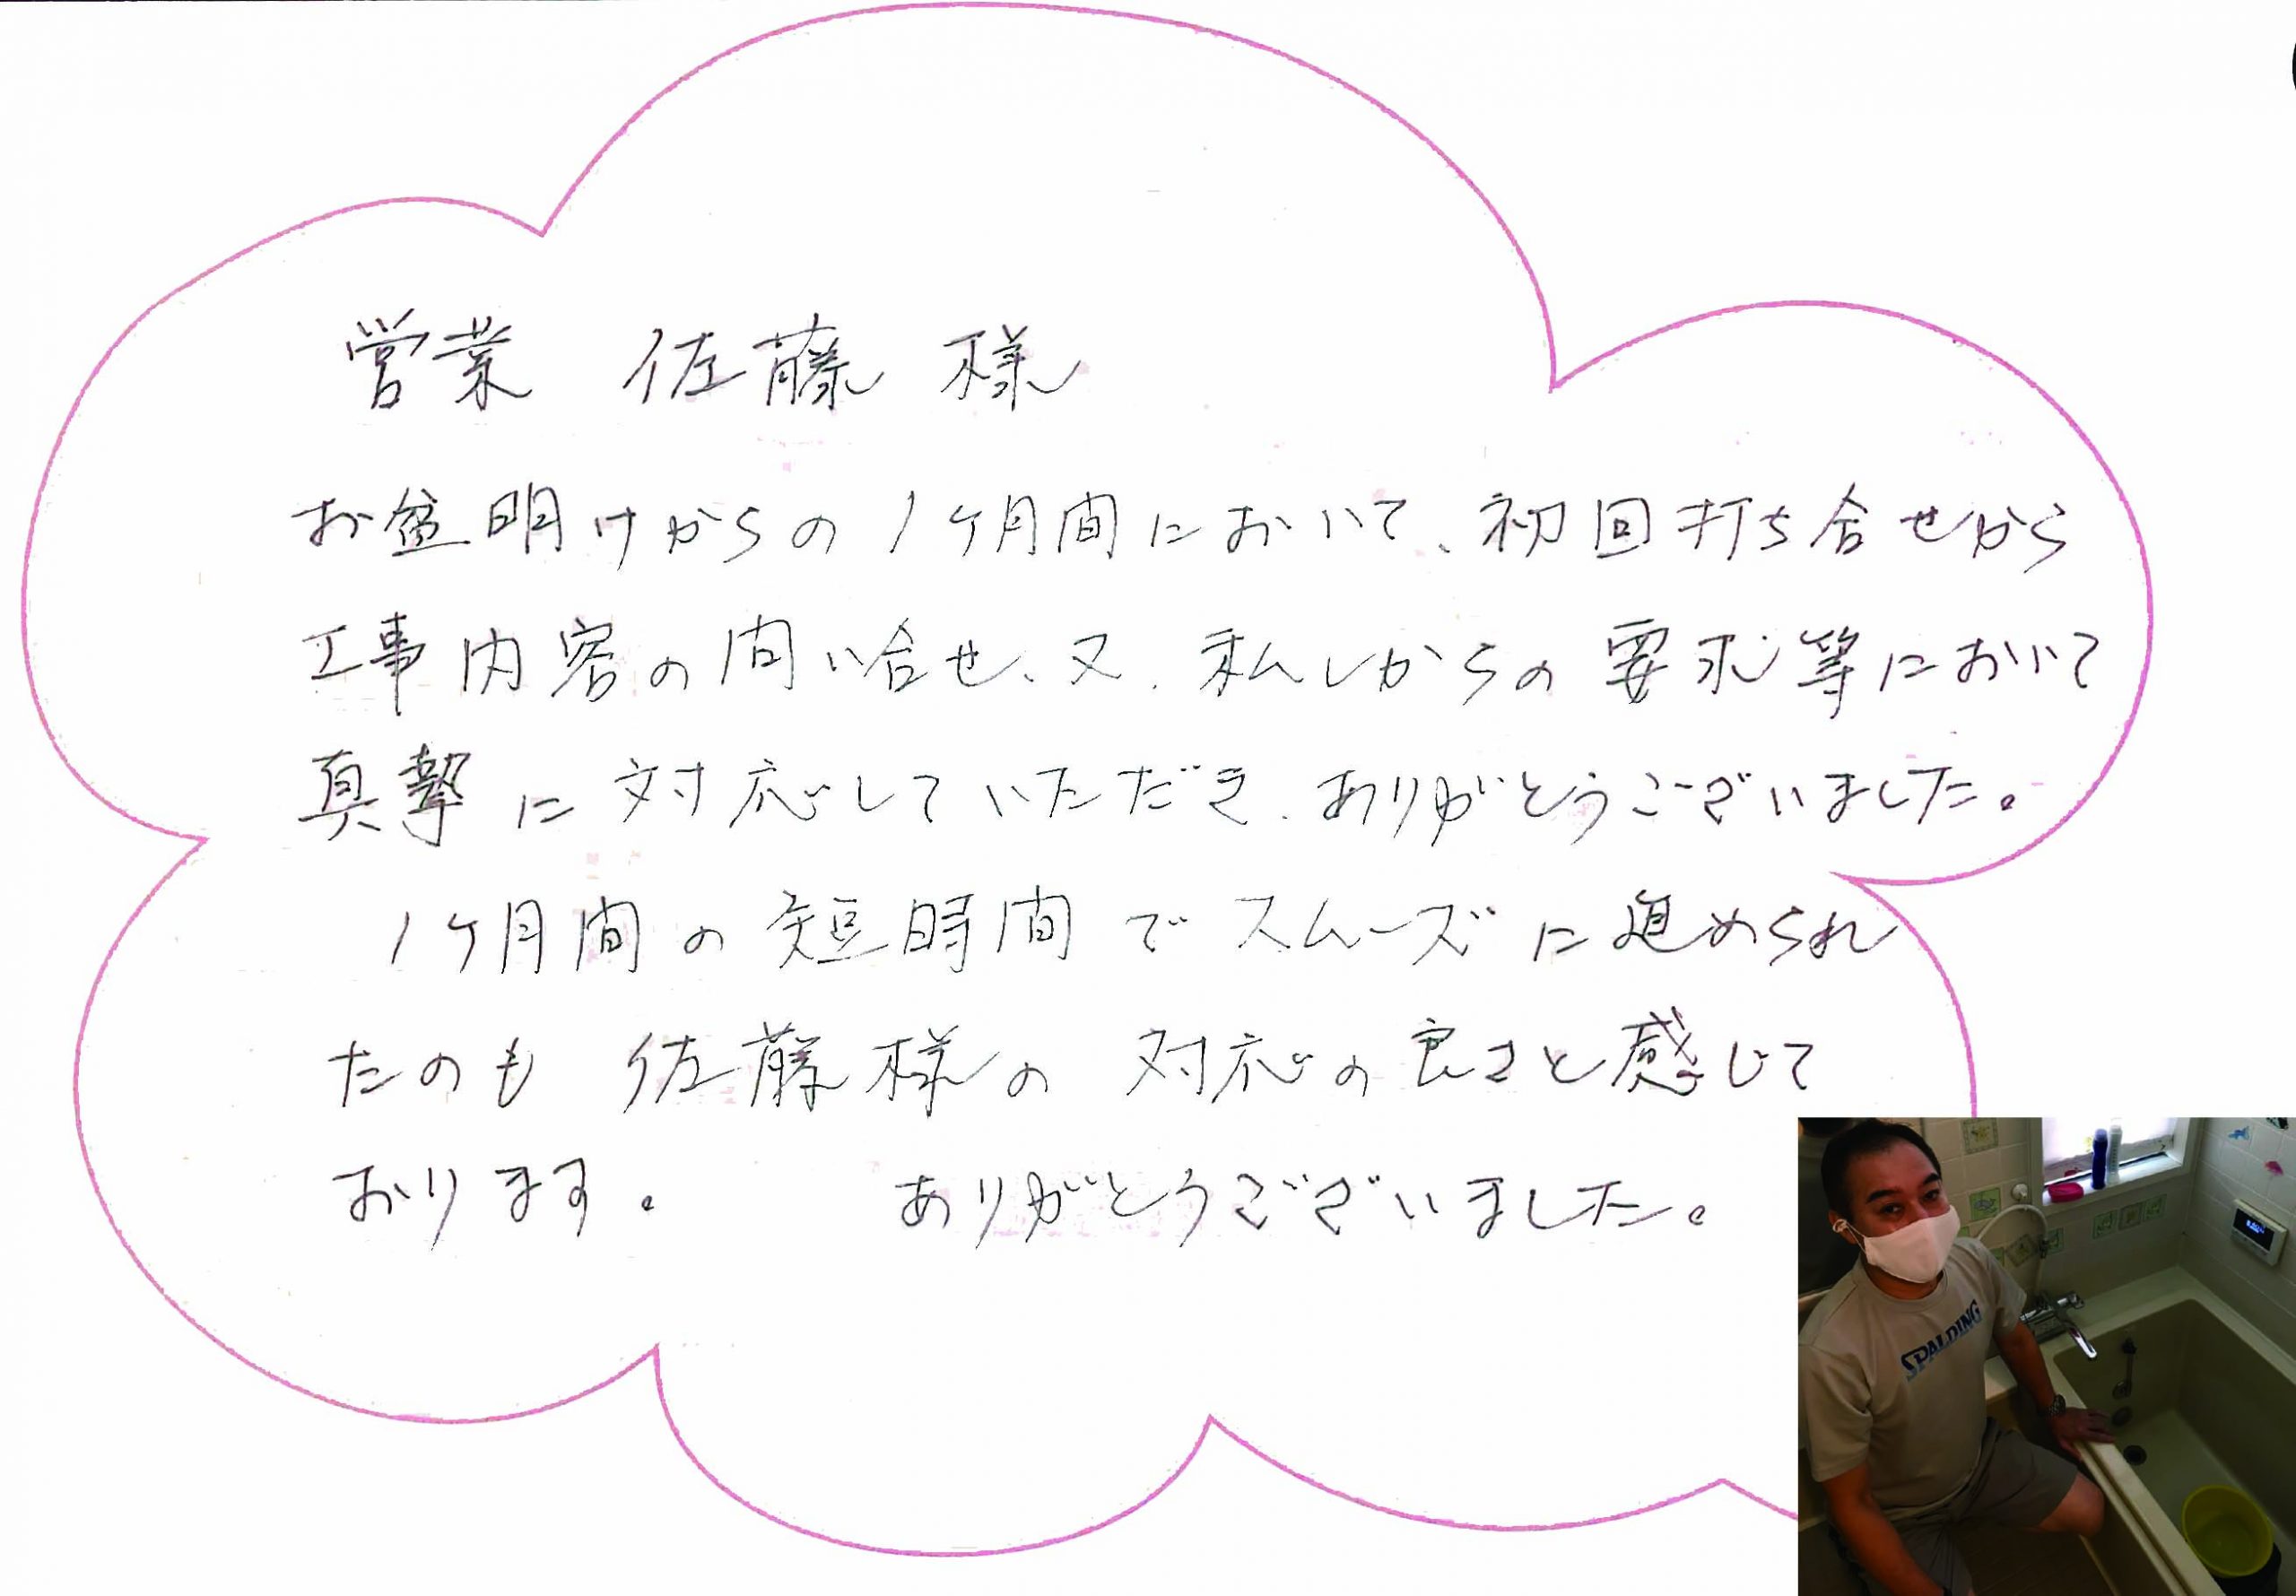 営業 佐藤 様
お盆明けからの1ヶ月間において、初回打ち合せから
工事内容の問い合せ、又、私しからの要求等において
真摯に対応していただき、ありがとうございました。
1ヶ月間の短時間でスムーズに進められ
たのも 佐藤様の 対応の良さと感じて
おります。 ありがとうございました。
SPALDING